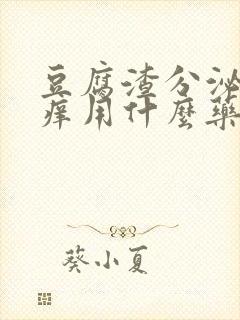 豆腐渣分泌
痒用什麼藥
葵小夏